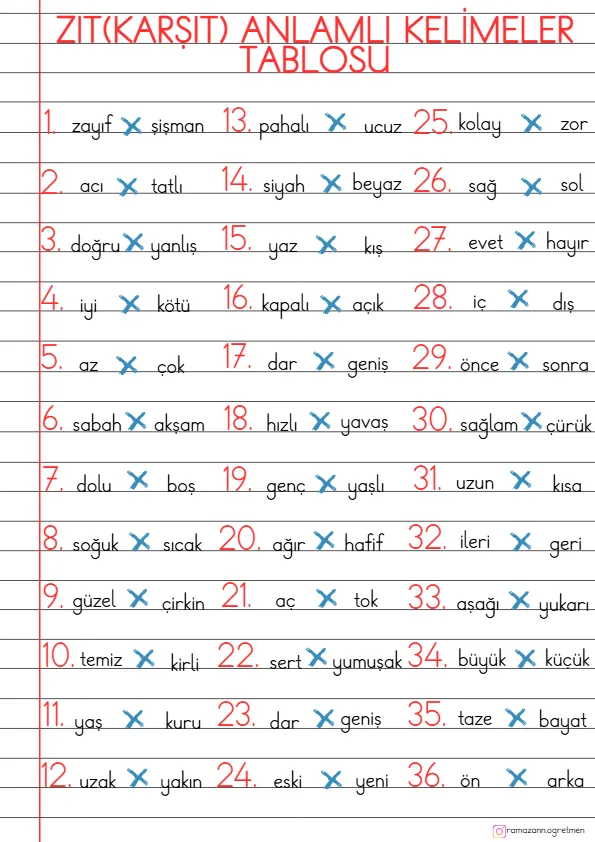 ZIT(KARŞIT) ANLAMLI KELİMELER
TABLOSU
1. zayıf X şişman
2. acı X tatlı
3. doğru X yanlış
4. iyi X kötü
5. az X çok
6. sabah X akşam
7. dolu X boş
8. soğuk X sıcak
9. güzel X çirkin
10. temiz X kirli
11. yaş X kuru
12. uzak X yakın
13. pahalı X ucuz
14. siyah X beyaz
15. yaz X kış
16. kapalı X açık
17. dar X geniş
18. hızlı X yavaş
19. genç X yaşlı
20. ağır X hafif
21. aç X tok
22. sert X yumuşak
23. dar X geniş
24. eski X yeni
25. kolay X zor
26. sağ X sol
27. evet X hayır
28. iç X dış
29. önce X sonra
30. sağlam X çürük
31. uzun X kısa
32. ileri X geri
33. aşağı X yukarı
34. büyük X küçük
35. taze X bayat
36. ön X arka
ramazann.ogretmen